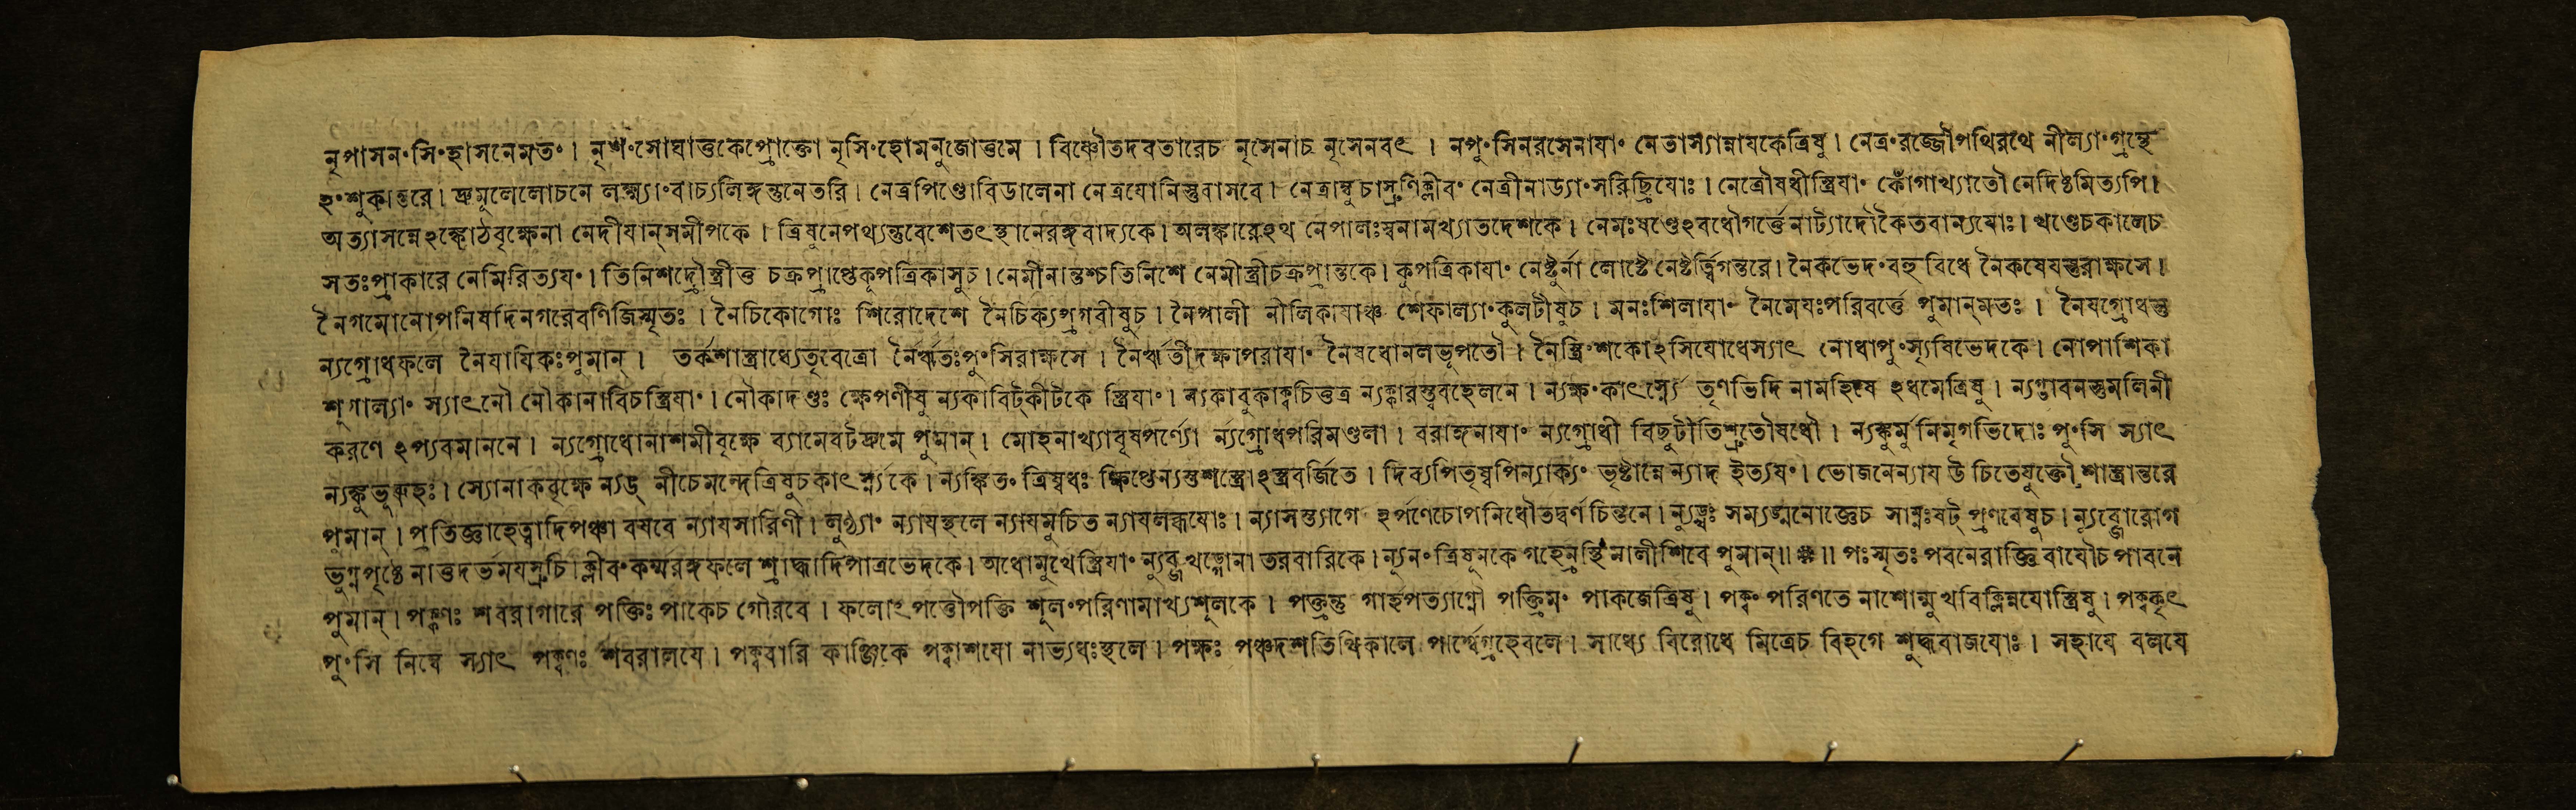 নৃপাসন॰সি॰হাসনেমত॰। নৃশ॰সোঘাত্তকেপ্রোক্তো নৃসি॰হোমনুজোত্তমে। বিষ্ণৌতদবতারেচ নৃসেনাচ নৃসেনবৎ। নপু॰সিনরসেনাযা॰ নেতাস্যান্নাযকেত্রিষু। নেত্র॰রজ্জৌপথিরথে নীল্যা॰গ্রন্থে
ঽ॰শুকান্তরে। দ্রুমূলেলোচনে লক্ষ্ম্যা॰বাচ্যলিঙ্গন্তুনেতরি। নেত্রপিণ্ডোবিডালেনা নেত্রযোনিস্তুবাসবে। নেত্রাম্বুচাস্রুণিক্লীব॰ নেত্রীনাড্যা॰সরিচ্ছ্রিযোঃ। নেত্রৌষধীস্ত্রিযা॰ নেদিষ্ঠমিত্যপি।
অত্যাসন্নেঽঙ্কোঠবৃক্ষেনা নেদীযান্সমীপকে। ত্রিষুনেপথ্যন্তুবেশেতৎস্থানেরঙ্গবাদ্যকে। অলঙ্কারেঽথ নেপালঃস্বনামখ্যাতদেশকে। নেমঃষণ্ডেঽবধৌগর্ত্তেনাট্যাদৌকৈতবান্যযোঃ। খণ্ডেচকালেচ
সতঃপ্রাকারে নেমিরিত্যয॰। তিনিশদ্রৌস্ত্রীত্ত চক্রপ্রাপ্তেকূপত্রিকাসুচ। নেমীনান্তশ্চতিনিশে নেমীস্ত্রীচক্রপ্রান্তকে। কুপত্রিকাযা॰ নেষ্টুর্না লোষ্টে নেষ্টর্ত্ত্বিগন্তরে। নৈকভেদ॰বহুবিধে নৈকষেযস্তুরাক্ষসে।
নৈগমোনোপনিষদিনগরেবণিজিস্মৃতঃ। নৈচিকোগোঃ শিরোদেশে নৈচিক্যপ্রগবীষুচ। নৈপালী নীলিকাযাঞ্চ শেফাল্যা॰কুলটীষুচ। মনঃশিলাযা॰ নৈমেযঃপরিবর্ত্তে পুমান্মতঃ। নৈযগ্রোধস্তু
ন্যগ্রোধফলে নৈযাযিকঃপুমান্। তর্কশাস্ত্রাধ্যেতৃবেত্রো নৈর্ঋতঃপু॰সিরাক্ষসে। নৈর্ঋতীদক্ষাপরাযা॰ নৈষধোনলভূপতৌ। নৈস্ত্রি॰শকোঽসিযোধেস্যাৎ নোধাপু॰স্যৃষিভেদকে। নোপাশিকা
শৃগাল্যা॰ স্যাৎনৌ নৌকানাবিচস্ত্রিযা॰। নৌকাদণ্ডঃ ক্ষেপণীষু ন্যকাবিট্কীটকে স্ত্রিযা॰। ন্যকাবুকাক্বচিত্তত্র ন্যক্কারস্ত্ববহেলনে। ন্যক্ষ॰কাৎর্স্ন্যে তৃণভিদি নামহিষে ঽধমেত্রিষু। ন্যগ্ভাবনস্তুমলিনী
করণে ঽপ্যবমাননে। ন্যগ্রোধোনাশমীবৃক্ষে ব্যামেবটদ্রুমে পুমান্। মোহনাখ্যাবৃষপর্ণ্যো ন্যগ্রোধপরিমণ্ডলা। বরাঙ্গনাযা॰ ন্যগ্রোধী বিছুটীতিশ্রুতৌষধৌ। ন্যঙ্কুর্মুনিমৃগভিদোঃ পু॰সি স্যাৎ
ন্যঙ্কুভূরুহঃ। স্যোনাকবৃক্ষে ন্যঙ্ নীচেমন্দেত্রিষুচকাৎর্স্ন্যকে। ন্যঙ্কিত॰ ত্রিষ্বধঃ ক্ষিপ্তেন্যস্তুশস্ত্রোঽস্ত্রবর্জিতে। দিব্যপিতৃষ্বপিন্যাক্য॰ ভৃষ্টান্নেন্যাদ ইত্যয॰। ভোজনেন্যায উচিতেযুক্তৌ শাস্ত্রান্তরে
পুমান্। প্রতিজ্ঞাহেত্বাদিপঞ্চা বযবে ন্যাযসারিণী। ন্যাযস্থলে ন্যাযমুচিত ন্যাযলব্ধযোঃ। ন্যাসস্ত্যাগে ঽর্পণেচোপনিধৌতদ্বর্ণচিন্তনে। ন্যুঙ্খঃ সম্যঙ্মনোজ্ঞেচ সাম্নঃষট্ প্রণবেষুচ। ন্যুব্জোরোগ
ভুগ্নপৃষ্ঠে নাত্তদর্ভমযস্রুচি। ক্লীব॰কর্ম্মরঙ্গফলে শ্রাদ্ধাদিপাত্রভেদকে। অধোমুখেস্ত্রিযা॰ ন্যুব্জখড্গোনা তরবারিকে। ন্যূন॰ত্রিষূনকে গর্হ্যেনৃস্থিমালীশিবে পুমান্॥ ※॥ পঃস্মৃতঃ পবনেরাজ্ঞি বাযৌচ পাবনে
পুমান্। পক্কণঃ শবরাগারে পক্তিঃ পাকেচ গৌরবে। ফলোৎপত্তৌপক্তি শূল॰পরিণামাখ্যশূলকে। পক্ত্রন্তু গার্হপত্যাগ্নৌ পক্ত্রিম॰ পাকজেত্রিষু। পক্ব॰ পরিণতে নাশোন্মুখবিক্লিন্নযোস্ত্রিষু। পক্বকৃৎ
পু॰সি নিম্বে স্যাৎ পক্বণঃ শবরালযে। পক্ববারি কাঞ্জিকে পক্বাশযো নাভ্যধঃস্থলে। পক্ষঃ পঞ্চদশতিথিকালে পার্শ্বেগ্রহেবলে। সাধ্যে বিরোধে মিত্রেচ বিহগে শুদ্ধবাজযোঃ। সহাযে বলযে